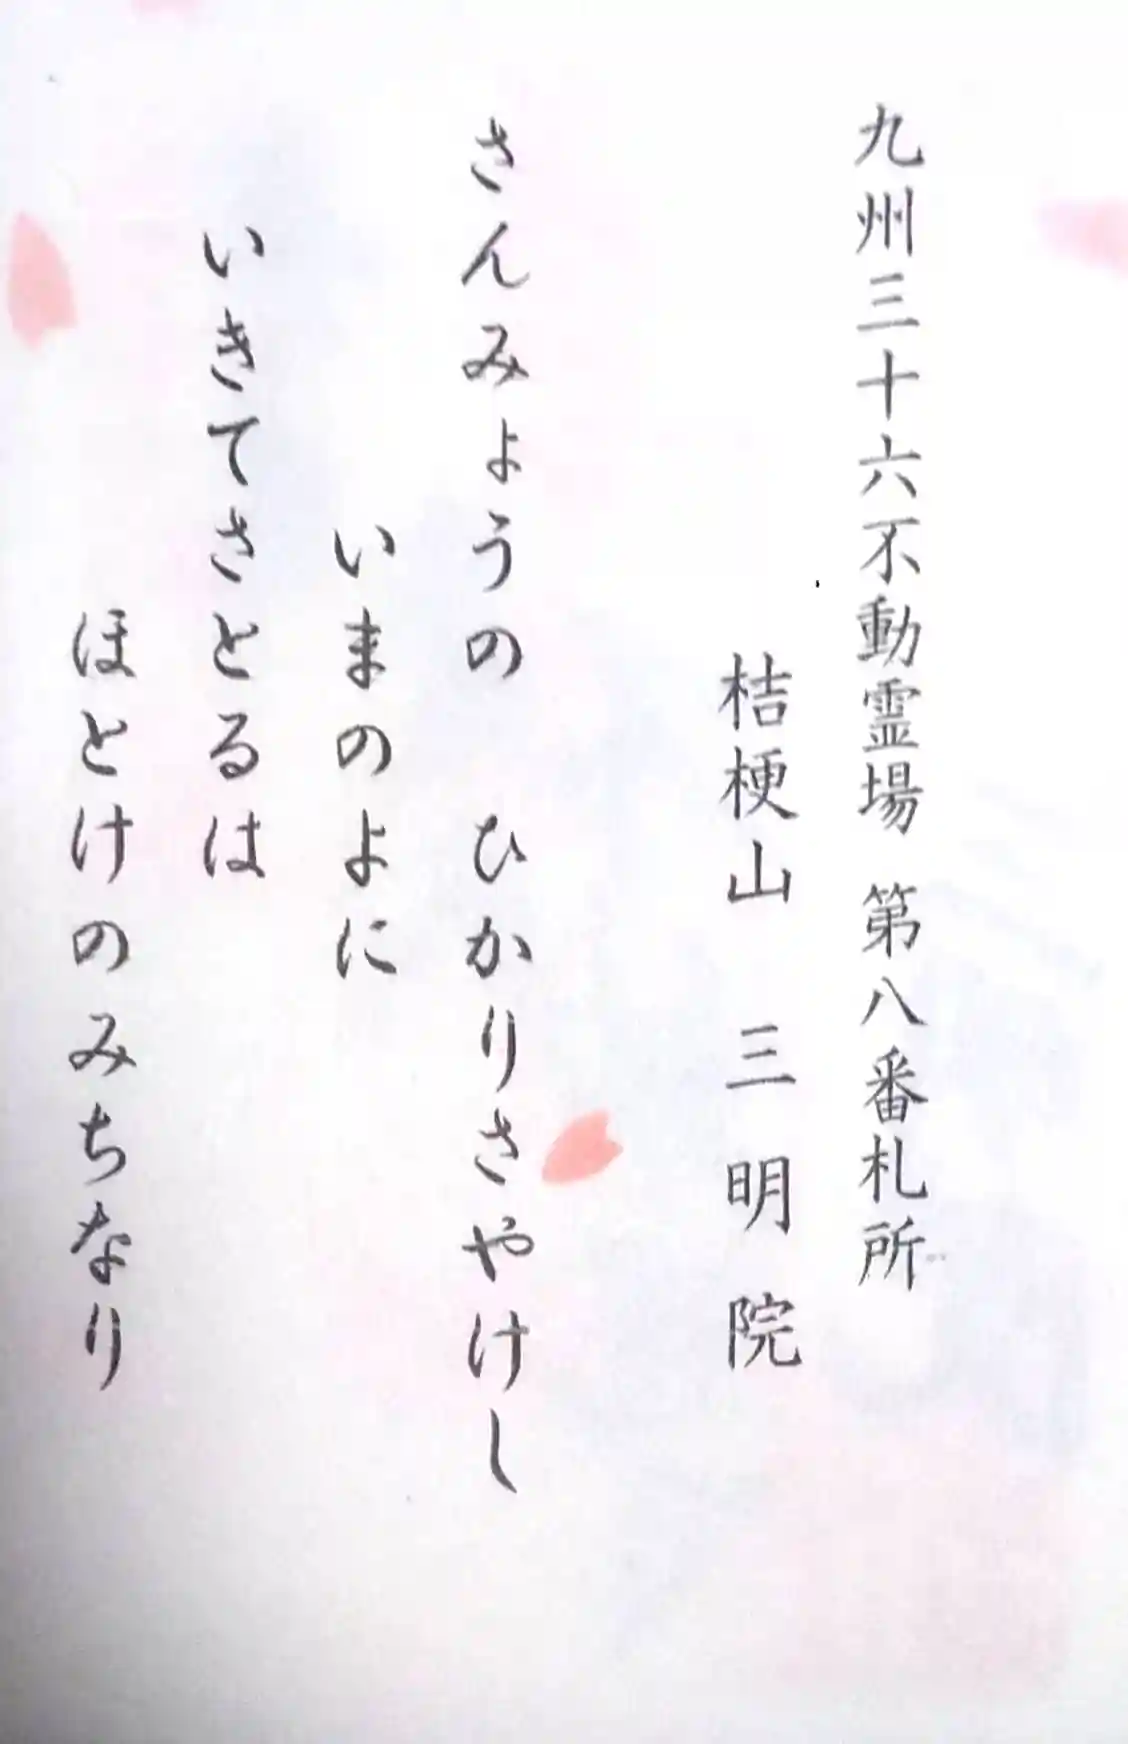 九州三十六不動霊場 第八番札所
桔梗山 三明院
さんみょうの ひかりさやけし
いまのよに
いきてさとるは
ほとけのみちなり